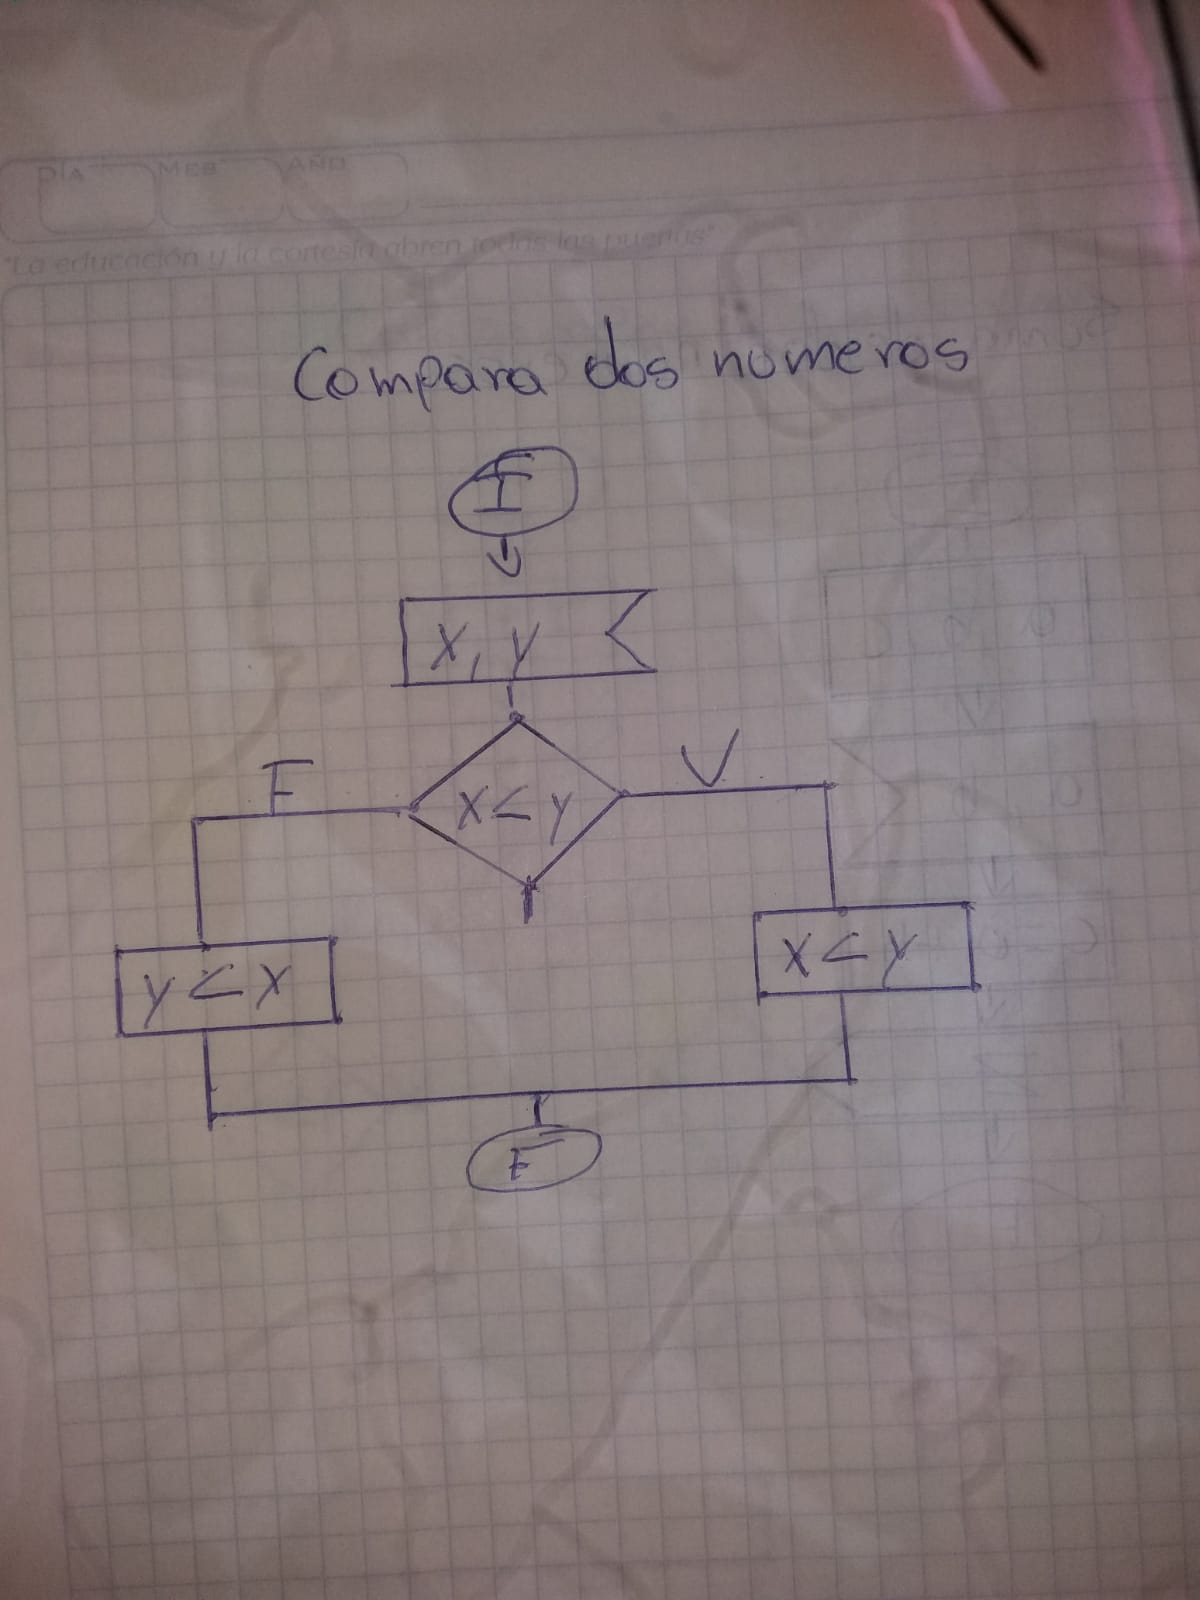 DÍA MES AÑO
"La educación y la cortesía abren todas las puertas"
Compara dos numeros
I
X, Y
F
V
X < Y
X < Y
Y < X
F